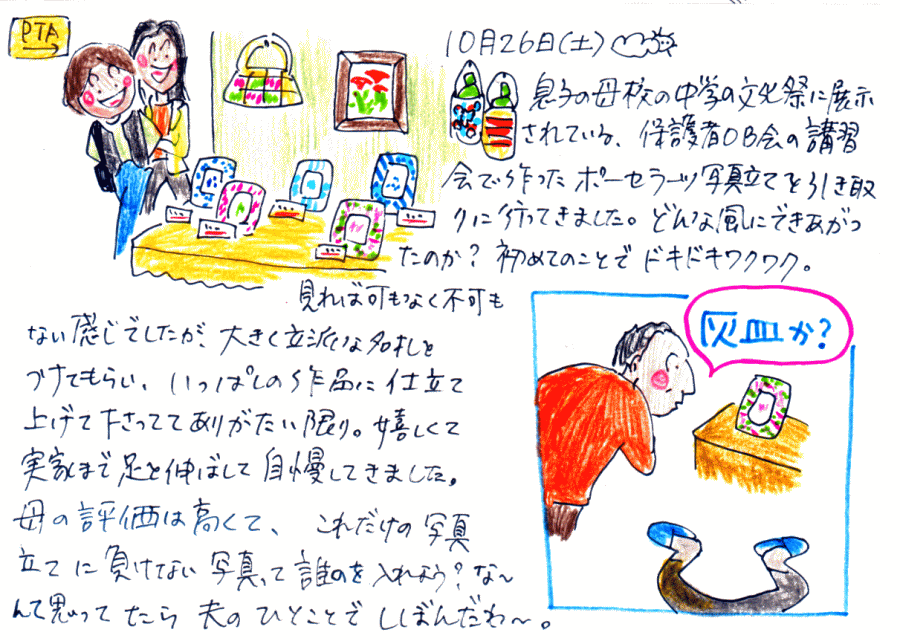 PTA
10月26日(土)
息子の母校の中学の文化祭に展示
されている、保護者OB会の講習
会で作ったポーセラーツ写真立てを引き取
りに行ってきました。どんな風にできあがっ
たのか?初めてのことでドキドキワクワク。
見れば可もなく不可も
ない感じでしたが、大きく立派な名札を
つけてもらい、いっぱしの作品に仕立て
上げて下さっててありがたい限り。嬉しくて
実家まで足を伸ばして自慢してきました。
母の評価は高くて、これだけの写真
立てに負けてない写真って誰のを入れよう?な〜
んて思ってたら夫のひとことでしぼんだわ〜。
灰皿か?